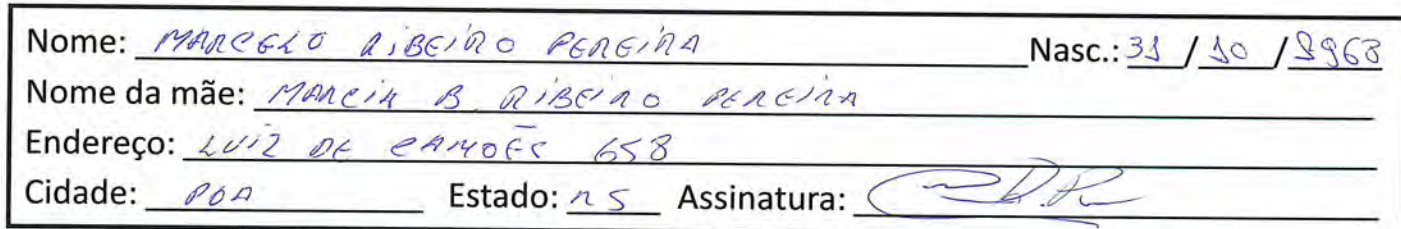 Nome: MARCELO RIBEIRO PEREIRA Nasc.: 31 / 10 / 1968
Nome da mãe: MARCIA B. RIBEIRO PEREIRA
Endereço: LUIZ DE CAMÕES 658
Cidade: POA Estado: RS Assinatura: